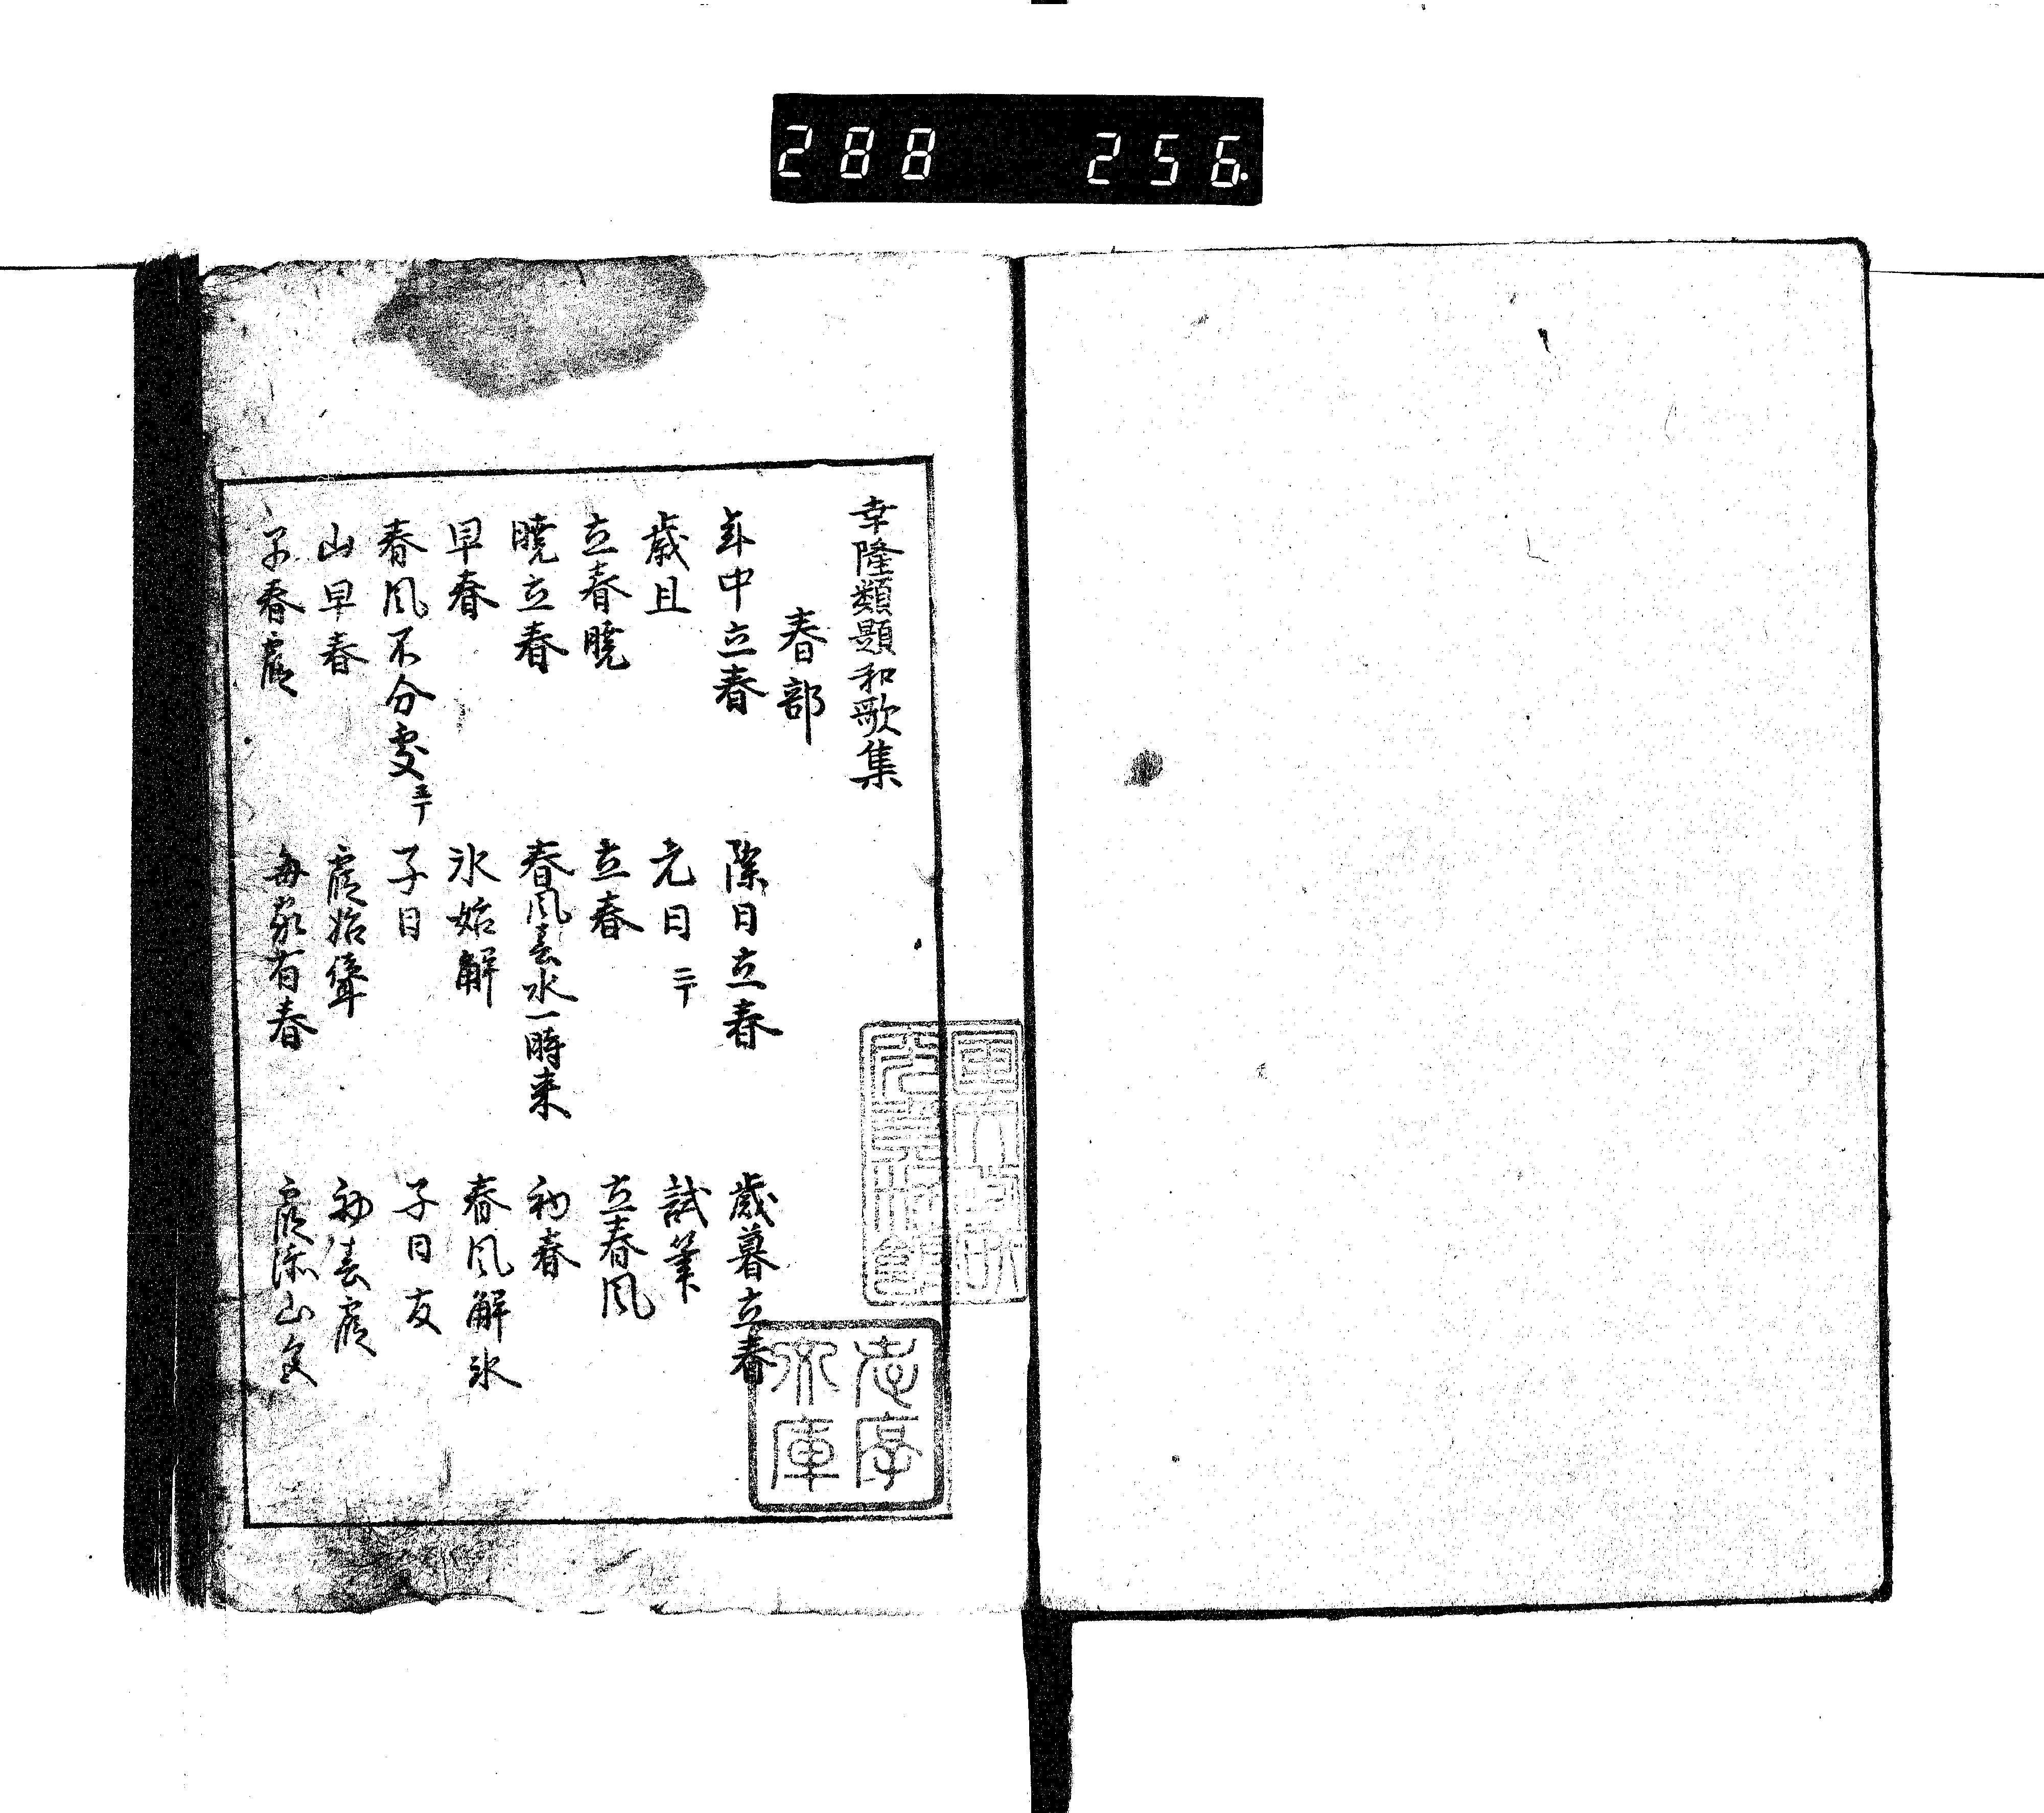 288 256
幸隆類題和歌集
春部
年中立春 除日立春 歳暮立春
歳旦 元日 二丁 試筆
立春暁 立春 立春風
暁立春 春風春水一時来 初春
早春 氷始解 春風解氷
春風不分處 子日 子日友
山早春 霞始聳 初春霞
早春霞 毎家有春 霞添山色
国文学研究資料館
文庫